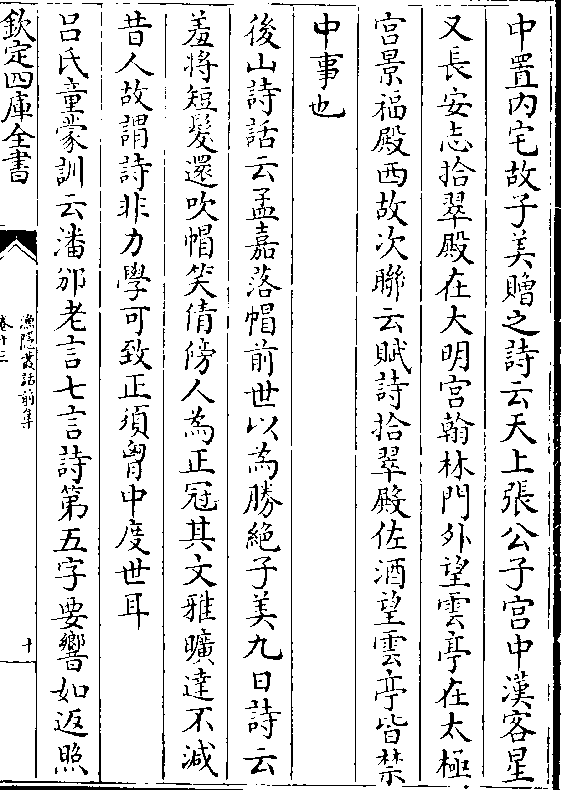 中置内宅故子美贈之詩云天上張公子宫中漢客星
又長安志拾翠殿在大明宫翰林門外望雲亭在太極
宫景福殿西故次聯云賦詩拾翠殿佐酒望雲亭皆禁
中事也
後山詩話云孟嘉落帽前世以為勝絶子美九日詩云
羞將短髪還吹帽笑倩傍人為正冠其文雅曠達不減
昔人故謂詩非力學可致正須胷中度世耳
吕氏童蒙訓云潘邠老言七言詩第五字要響如返照
欽定四庫全書
漁隠叢話前集
卷十三
十